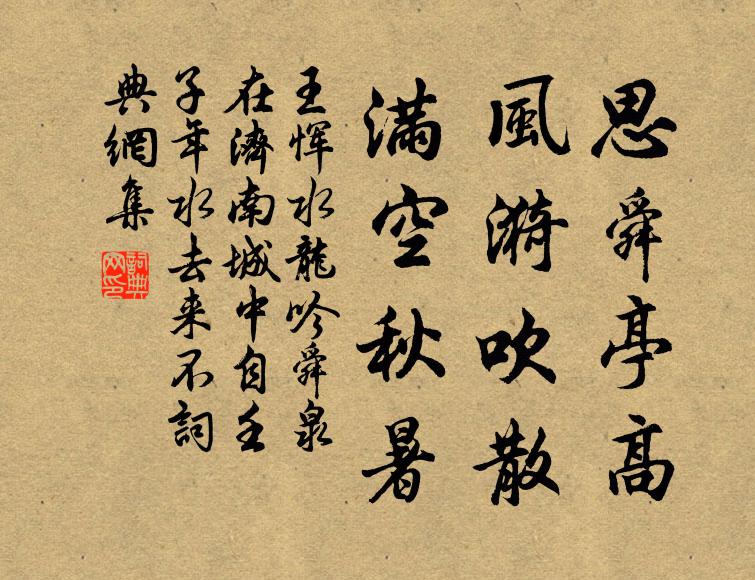 思舜亭高
風漪吹散
滿空秋暑
王惲水龍吟舜泉
在濟南城中自壬
子年水去来不詞
典網集
詞典
网印